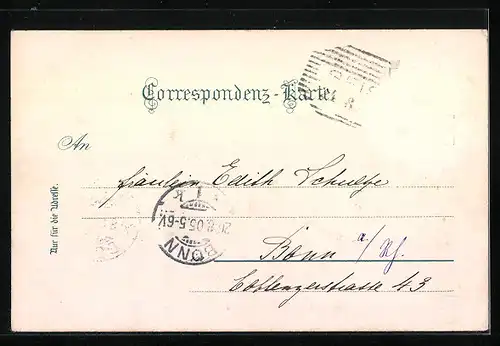 Correspondenz-Karte.
An
Fräulein Edith Schultze
Nur für die Adresse.
26.8.05.5-6V.
BONN
Bonn a/Rh.
Coblenzerstrasse 43